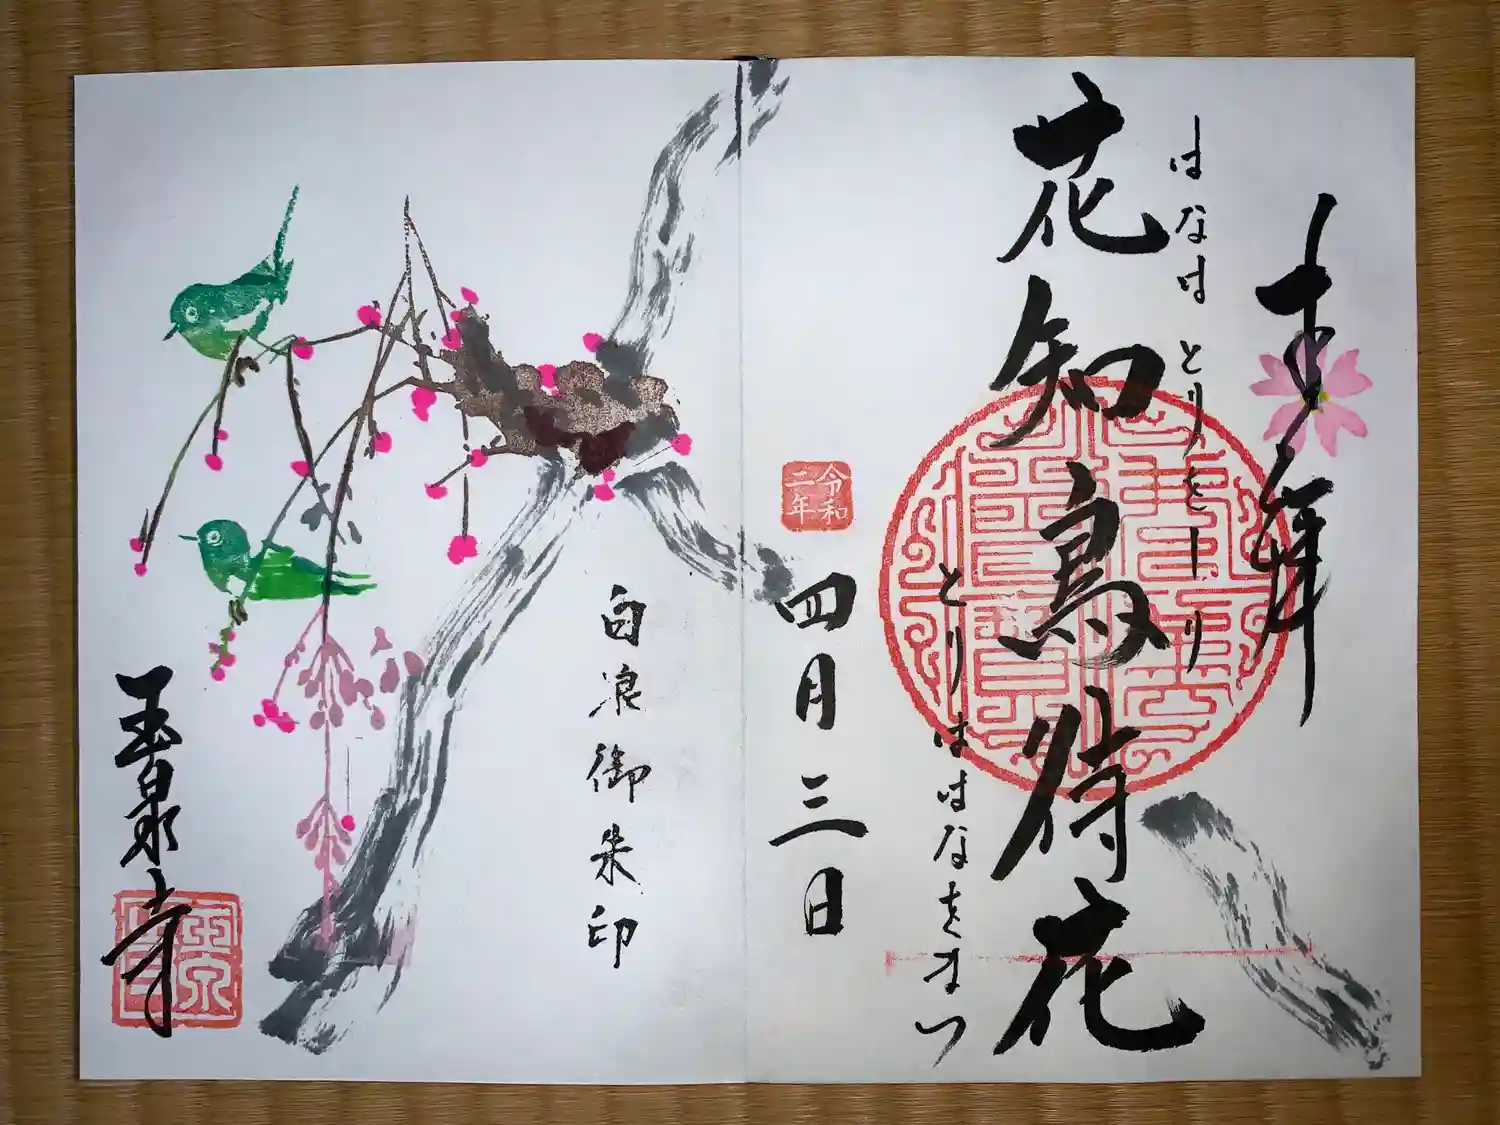 奉拝
はなはとりをしり
花知鳥待花
とりははなをまつ
令和
二年
四月三日
白浪御朱印
玉泉寺